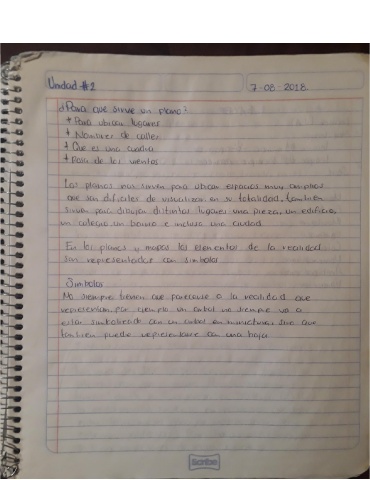 Unidad #2
7-08-2018
¿Para que sirve un plano?
* Para ubicar lugares
* Nombres de calles
* Que es una cuadra
* Rosa de los vientos
Los planos nos sirven para ubicar espacios muy amplios
que son dificiles de visualizar en su totalidad, tambien
sirven para dibujar distintos lugares una pieza, un edificio,
un colegio, un barrio e incluso una ciudad.
En los planos y mapas los elementos de la realidad
son representados con simbolos
Simbolos
No siempre tienen que parecerse a la realidad que
representan, por ejemplo un arbol no siempre va a
estar simbolizado con un arbol en miniatura, sino que
tambien puede representarse con una hoja
Scribe